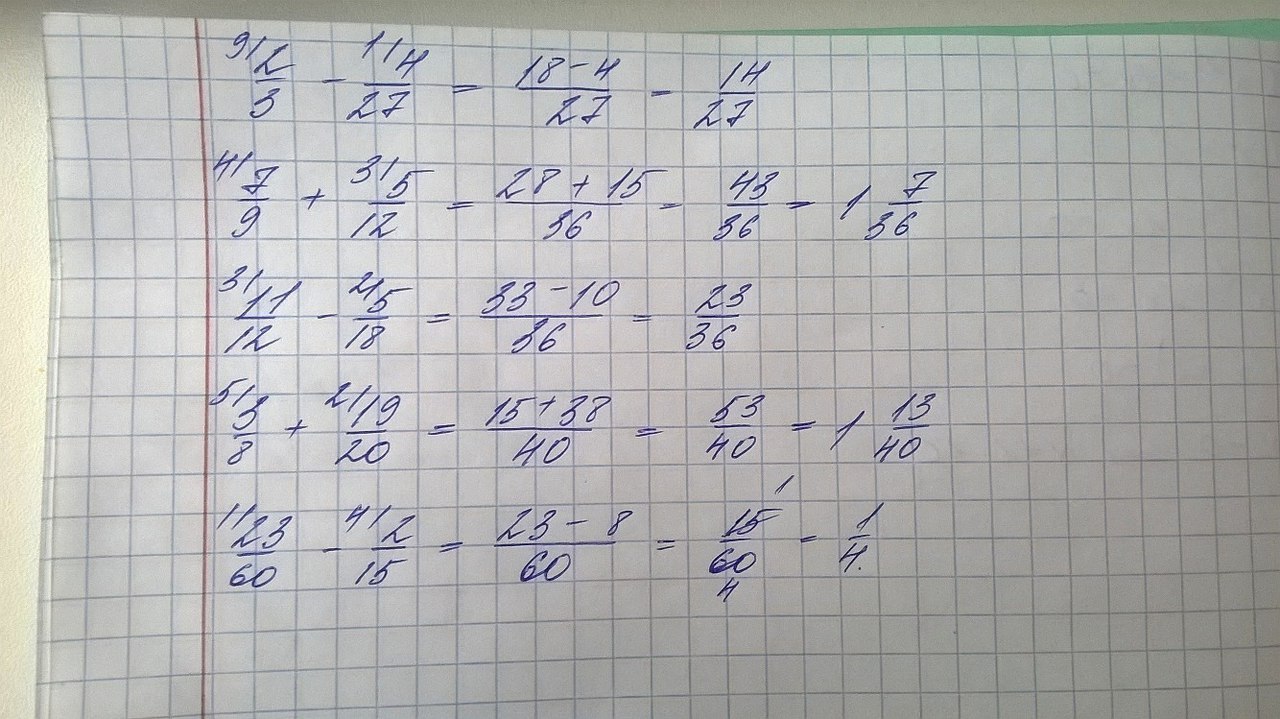 9/ 2/3 - 1/ 4/27 = (18-4)/27 = 14/27
4/ 7/9 + 3/ 5/12 = (28+15)/36 = 43/36 = 1 7/36
3/ 11/12 - 2/ 5/18 = (33-10)/36 = 23/36
5/ 3/8 + 2/ 19/20 = (15+38)/40 = 53/40 = 1 13/40
1/ 23/60 - 4/ 2/15 = (23-8)/60 = 15 1/60 4 = 1/4.